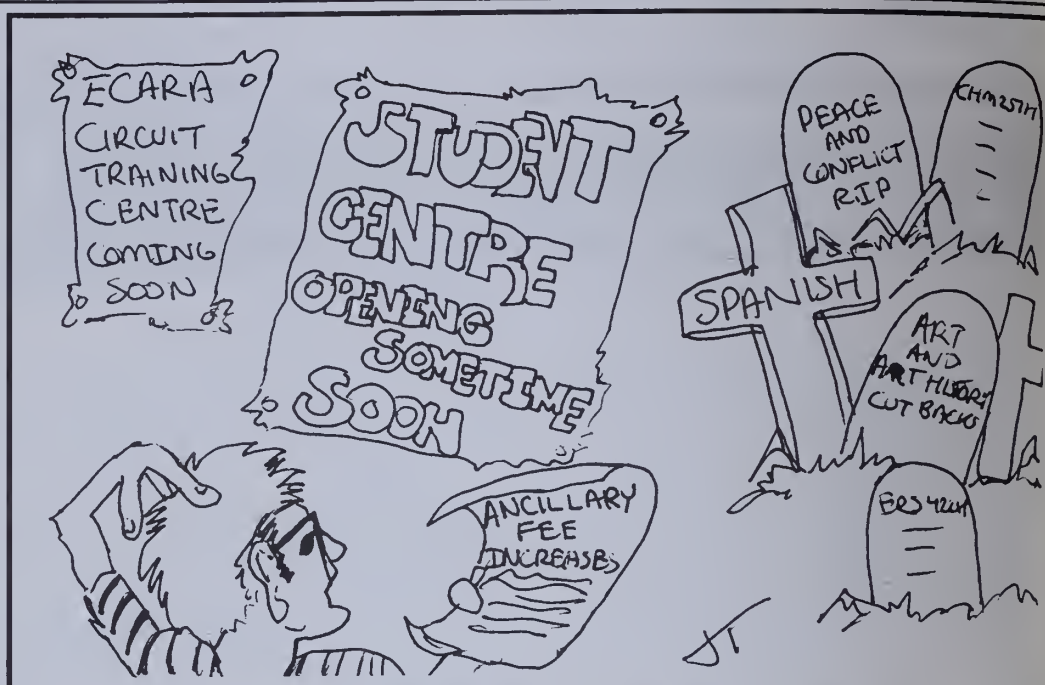 ECARA
CIRCUIT
TRAINING
CENTRE
COMING
SOON
STUDENT
CENTRE
OPENING
SOMETIME
SOON
PEACE
AND
CONFLICT
R.I.P
SPANISH
ART
AND
ART HISTORY
CUT BACKS
ANCILLARY
FEE
INCREASES
JT